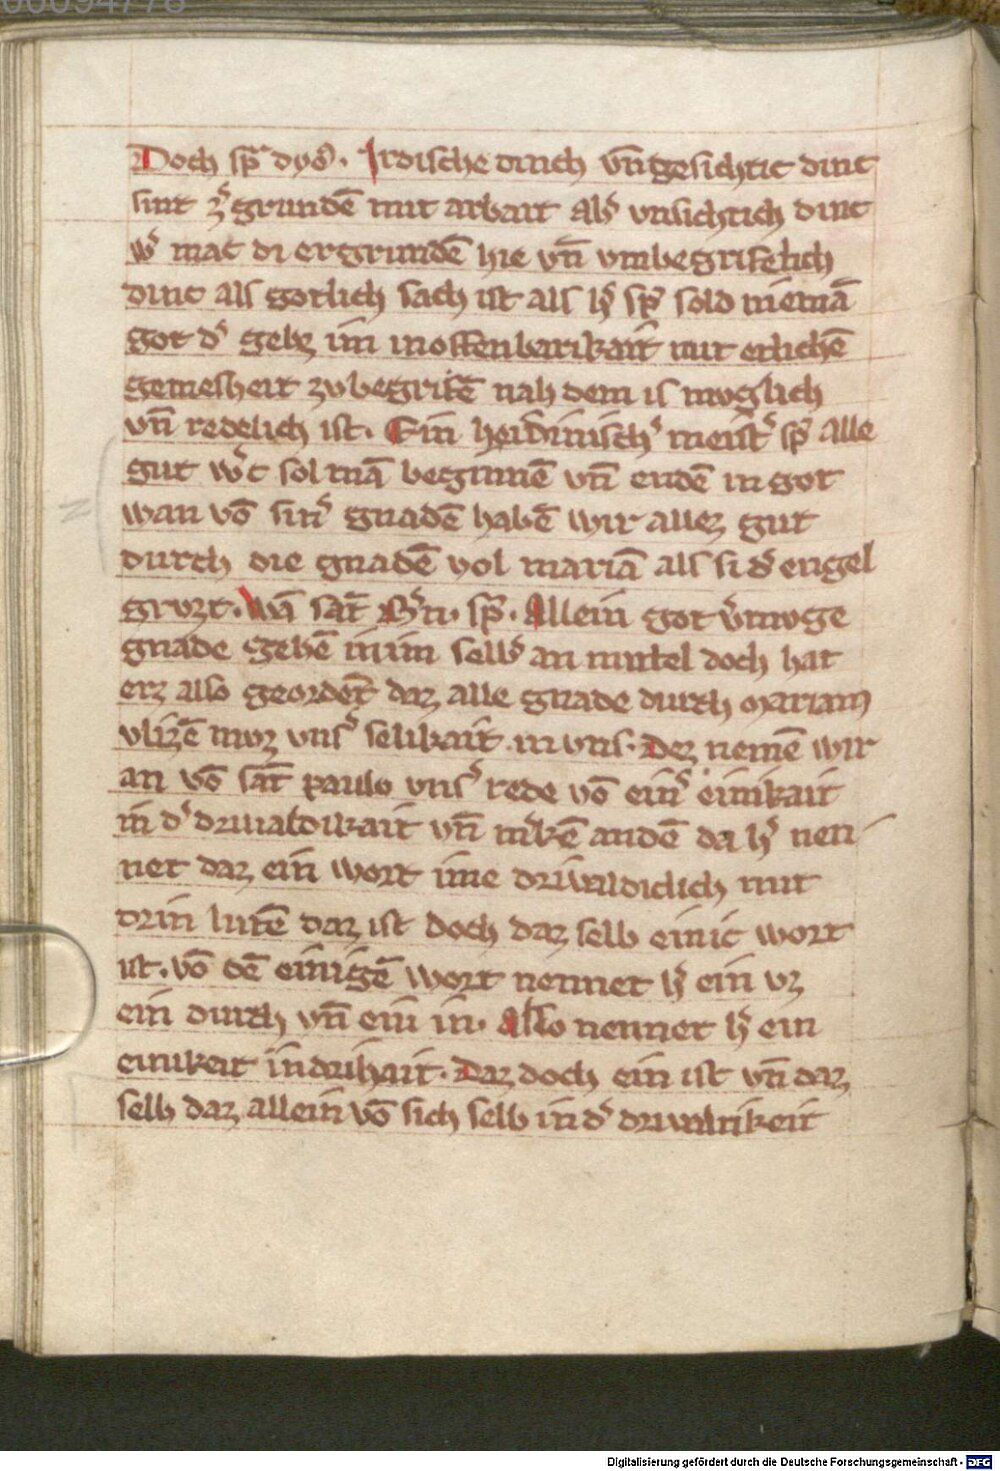 00094778
Doch spᵃ dyoͥ. Irdische dinch vn̄ gesichtic dinc
sint zͤ grundē mit arbait alsͦ vnsichtich dinc
wͤ mac di ergrundē hie vn̄ vmbegrifelich
dinc als gotlich sach ist als hͤ spͤ sold niemā
got dͤ gebe im in offenbarikait mit etlichē
gemesheit zv begrifē nah dem is mvglich
vn̄ redelich ist. Ein heidinischͤ meistͤ spͤ alle
gut wͤc sol mā beginnē vn̄ endē in got
wan vō sinͤ gnadē habē wir allez gut
durch die gnadē vol mariā als si dͤ engel
grvzt. Wā sāt Bͤn. spᵃ. Allein got vͤmvge
gnade gebē in im selbͤ an mittel doch hat
erz also geordēt daz alle gnade durch mariam
vlizē mvz vnsͤ selikait in vns. Dez nemē wir
an vō sāt paulo vnsͤ rede vō einͤ einikait
in dͤ driualdikait vn̄ mͤkē andē da hͤ nen
net daz ein wort ime driualdiclich mit
drin lutē daz ist doch daz selb einic wort
ist. vō dē einigē wort nennet hͤ ein vz
ein durch vn̄ ein in. Also nennet hͤ ein
einikeit in drihait. Daz doch ein ist vn̄ daz
selb daz allein vō sich selb in dͤ driualtikeit
Digitalisierung gefördert durch die Deutsche Forschungsgemeinschaft - DFG